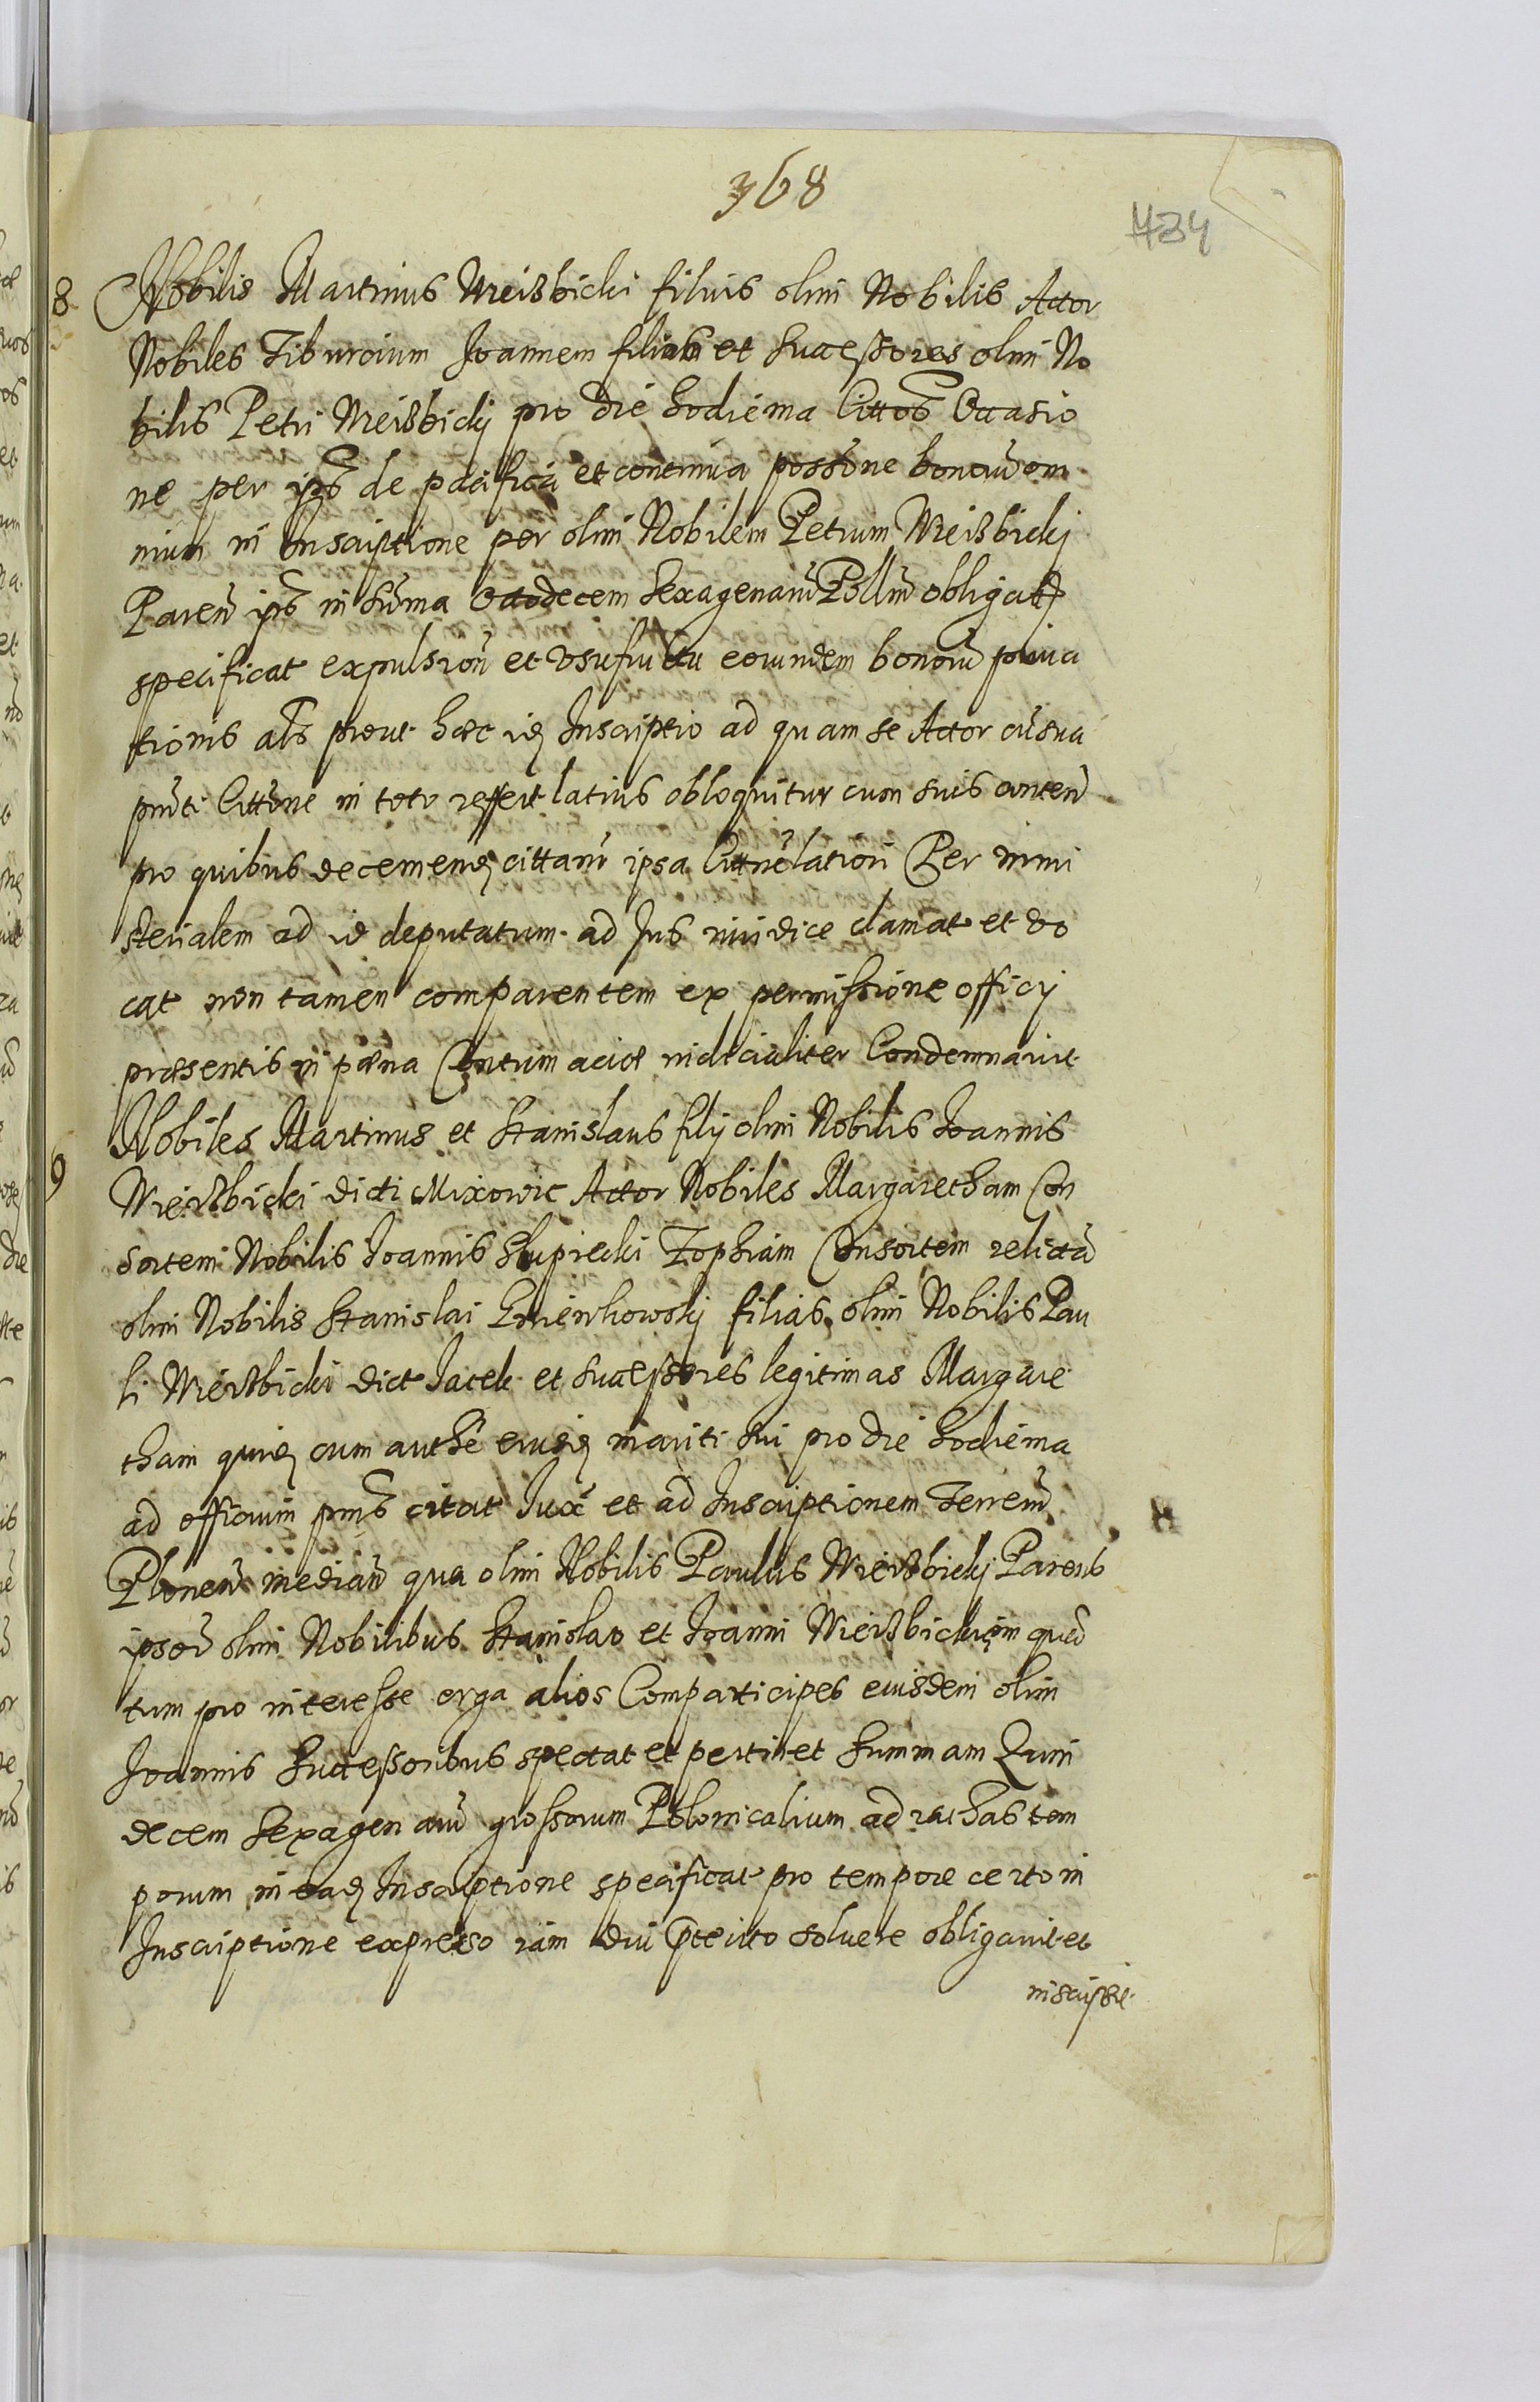 368
434
8 Nobilis Martinus Wierzbicki filius olim Nobilis Actor
Nobiles Tiburcium Joannem filios et Successores olim No
bilis Petri Wierzbicki pro die hodierna Cittos Occasio
ne per ipos de pacifica et continua possōne bonorū om
nium in Inscriptione per olim Nobilem Petrum Wierzbickj
Paren ipos in suma Octodecem Sexagenarū Pollīum obligat
specificat expulsion et Usufructu eorundem bonorū priva
tionis als prout haec id Inscriptio ad quam se Actor cū sua
pnti Cittōne in toto reffert latius obloquitur cum suis conten
pro quibus decernend cittarū ipsa Cittnē lation Per mini
sterialem ad id deputatum ad Jus iuridice clamat et vo
cat non tamen comparentem ex permissione officij
praesentis in paena Contumaciae iudicialiter Condemnavit
9 Nobiles Martinus et Stanislaus filij olim Nobilis Joannis
Wierzbicki dicti Mixowic Actor Nobiles Margaretham Con
sortem Nobilis Joannis Slupiecki Zophiam Consortem relictā
olim Nobilis Stanislai filias olim Nobilis Pau
li Wierzbicki dict Jacek et Successores legitimas Margare
tham quid cum authē eiusd mariti sui pro die hodierna
ad officium pns citat Juxā et ad Inscriptionem Terren
Plonen median qua olim Nobilis Paulus Wierzbickj Parens
ipsorū olim Nobilibus Stanislao et Joanni Wierzbickim quan
tum pro interesse erga alios Comparticipes eiusdem olim
Joannis Successoribus spectat et pertinet Summam Quin
decem Sexagenarū grossorum Polonicalium ad rathas tem
porum in ead Inscriptione specificat pro tempore certo in
Inscriptione expresso iam diu pterito soluere obligavit et
inscripsit